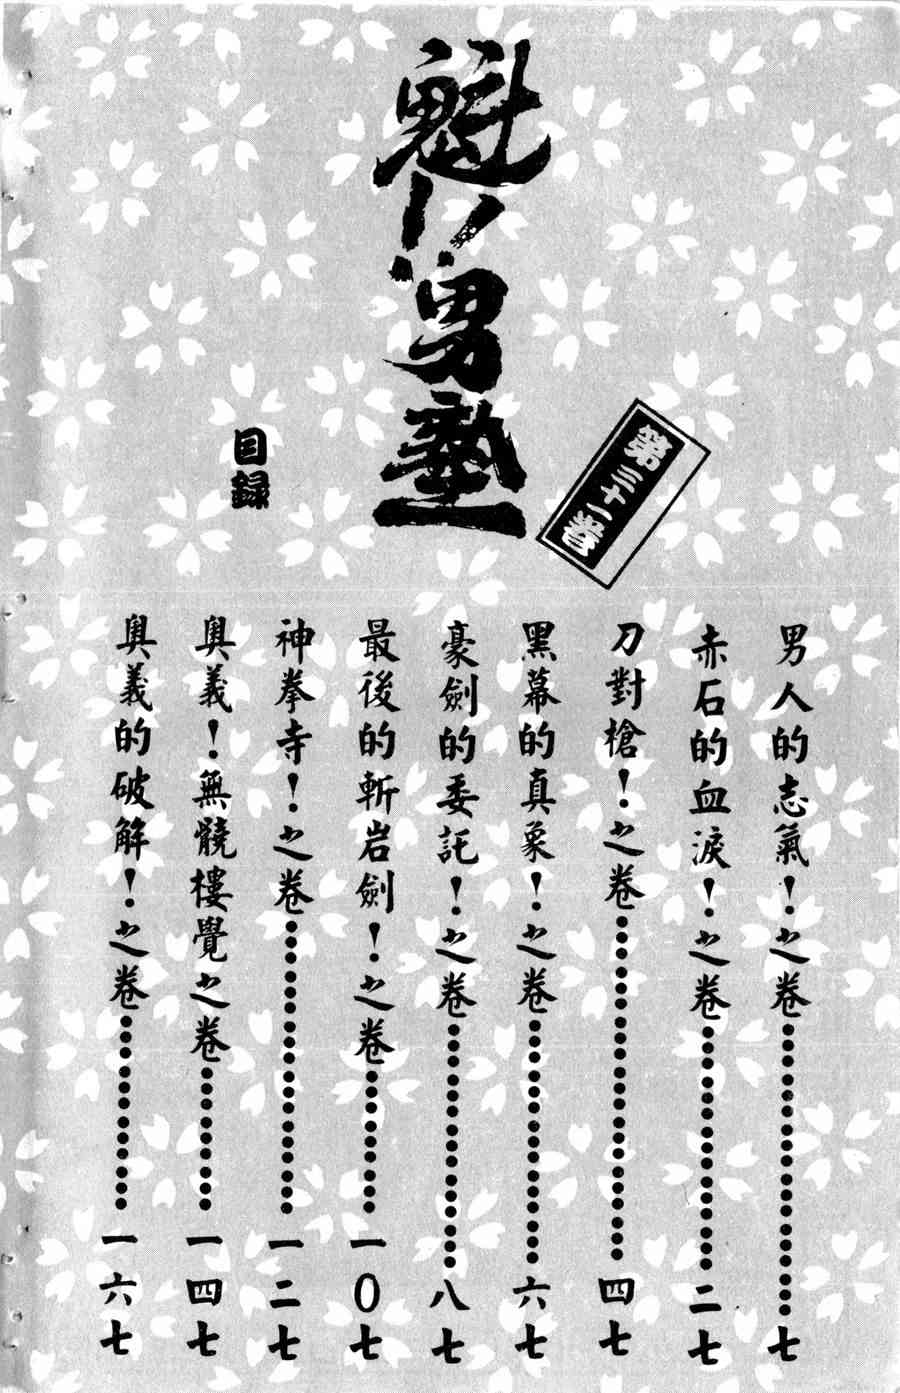 魁!!男塾
第三十一卷
目録
男人的志氣!之卷………七
赤石的血淚!之卷………二七
刀對槍!之卷………四七
黑幕的真象!之卷………六七
豪劍的委託!之卷………八七
最後的斬岩劍!之卷………一〇七
神拳寺!之卷………一二七
奧義!無髐樓覺之卷………一四七
奧義的破解!之卷………一六七